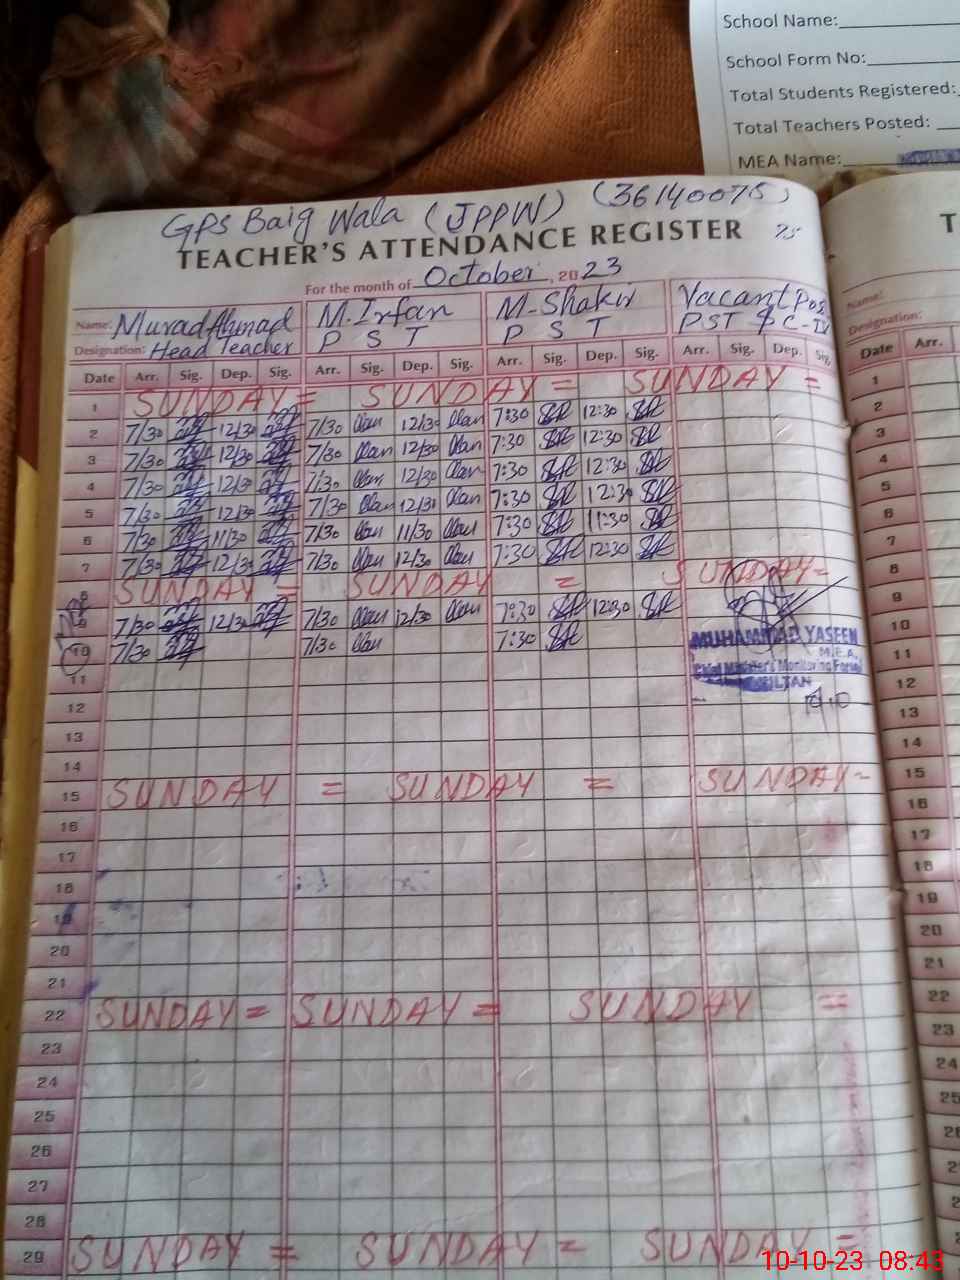 School Name:
School Form No:
Total Students Registered:
Total Teachers Posted:
MEA Name:
GPS Baig Wala (JPPW) (36140075)
TEACHER'S ATTENDANCE REGISTER
For the month of October, 2023
Name: Murad Ahmad M. Irfan M-Shakir Vacant Pos
Designation: Head Teacher P S T P S T PST
Date Arr. Sig. Dep. Sig. Arr. Sig. Dep. Sig. Arr. Sig. Dep. Sig. Arr. Sig. Dep. Sig.
1 SUNDAY = SUNDAY = SUNDAY =
2 7/30 12/30 7/30 12/30 7:30 12:30
3 7/30 12/30 7/30 12/30 7:30 12:30
4 7/30 12/30 7/30 12/30 7:30 12:30
5 7/30 12/30 7/30 12/30 7:30 12:30
6 7/30 11/30 7/30 11/30 7:30 11:30
7 7/30 12/30 7/30 12/30 7:30 12:30
8 SUNDAY = SUNDAY = SUNDAY =
9 7/30 12/30 7/30 12/30 7:30 12:30
10 7/30 7/30 7:30
MUHAMMAD YASEEN
M.E.A.
Chief Minister's Monitoring Force
11
12
13
14
15 SUNDAY = SUNDAY = SUNDAY =
16
17
18
19
20
21
22 SUNDAY = SUNDAY = SUNDAY =
23
24
25
26
27
28
29 SUNDAY = SUNDAY = SUNDAY =
T
Name:
Designation:
Date Arr.
1
2
3
4
5
6
7
8
9
10
11
12
13
14
15
16
17
18
19
20
21
22
23
24
10-10-23 08:43